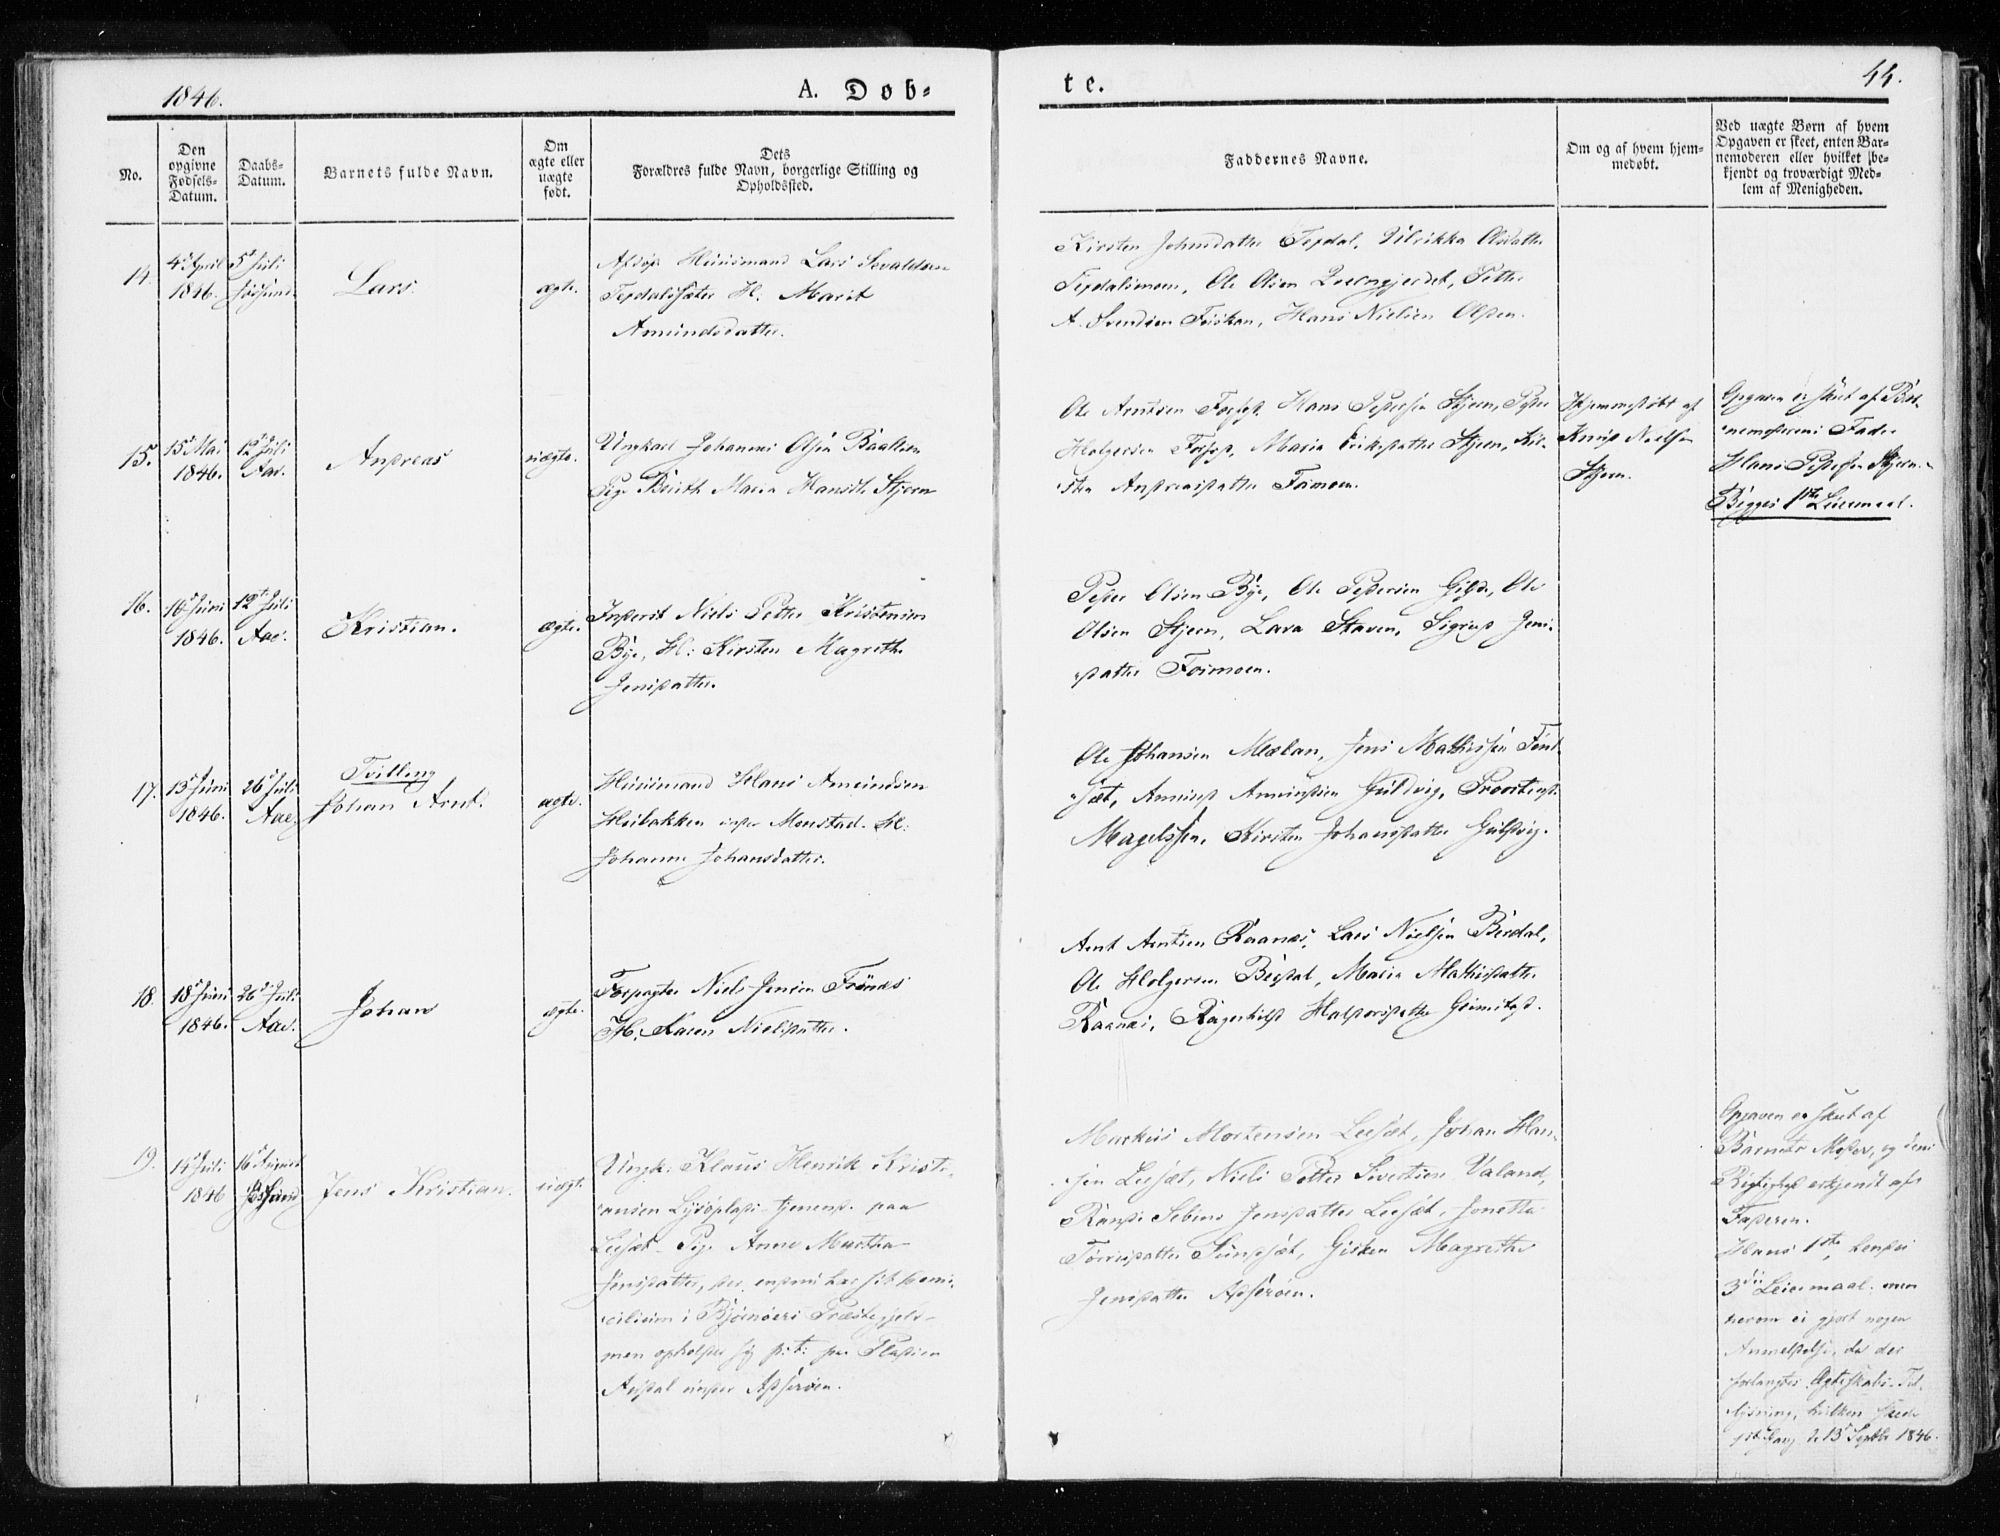 1846.
A. Døb-
te.
44.
No.
Den
opgivne
Fødsels-
Datum.
Daabs-
Datum.
Barnets fulde Navn.
Om
ægte eller
uægte
født.
Dets
Forældres fulde Navn, borgerlige Stilling og
Opholdssted.
Faddernes Navne.
Om og af hvem hjem-
medøbt.
Ved uægte Børn af hvem
Opgaven er skeet, enten Bar-
nemoderen eller hvilket be-
kjendt og troværdigt Med-
lem af Menigheden.
14.
4de April
1846.
5te Juli
Lars
ægte.
Huusmand Lars Sevaldsen
H: Marit
Amundsdatter.
Kirsten Johnsdatter Ulrikka Olsdatter
Ole Olsen Qverngjerdet, Petter
A. Svendsen Hans Nielsen
15.
15de Mai
1846.
12te Juli
Aae.
Andreas
uægte.
Ungkarl Johannes Olsen
Pige Berith Maria Hansdtr Stjern
Ole Arntsen Hans Pedersen Stjern, Peder
Holgersen Maria Eriksdatter Stjern, Kir-
sten Andreasdatter Foimoen.
Hjemmedøbt af
Knud Nielsen
Stjern.
Opgaven er skeet af Bar-
nemoderens Fader
Hans Pedersen Stjern.
Begges 1ste Leiermaal.
16.
10de Juni
1846.
12te Juli
Aae.
Kristian.
ægte.
Inderst Niels Petter Kristensen
Bye, H: Kirsten Magrethe
Jensdatter.
Peder Olsen Bye, Ole Pedersen Ole
Olsen Stjern, Lava Staven, Sigrid Jens-
datter Foimoen.
17.
13de Juni
1846.
26de Juli
Aae.
Tvilling
Johan Arnt.
ægte.
Huusmand Hans Amundsen
Høibakken under Monstad. H:
Johanne Johansdatter.
Ole Johansen Mælan, Jens Mathissen
Amund Amundsen Guldvig,
Magelssen, Kirsten Johansdatter Guldvig.
18.
18de Juni
1846.
26de Juli
Aae.
Johan
ægte.
Forpagter Niels Jensen Frönes
H. Karen Nielsdatter.
Arnt Arntsen Raanes, Lars Nielsen Berdal,
Ole Holgersen Berdal, Maria Mathisdatter
Raanes, Ragenhild Haldorsdatter
19.
14de Juli
1846
16de August
Jens Kristian.
uægte.
Ungk: Klaus Henrik Kristi-
ansen tjenende paa
Leesæt. Pige Anne Martha
Jensdatter, der endnu har sit Domi-
cilium i Bjørnøers Præstegjeld
men opholder sig p: t: paa Pladsen
under
Markus Mortensen Leesæt, Johan Han-
sen Leesæt, Niels Petter Sivertsen Valand,
Sebine Jensdatter Leesæt, Jonetta
Gisken Magrethe
Jensdatter
Opgaven er skeet af
Barnets Moder, og dens
Rigtighed erkjendt af
Faderen.
Hans 1ste, hendes
3die Leiermaal. men
herom ei gjort nogen
Anmeldelse, da der
forlangtes Ægteskabs-Til-
lysning, hvilken skede
1ste Gang d 13de Septbr 1846.